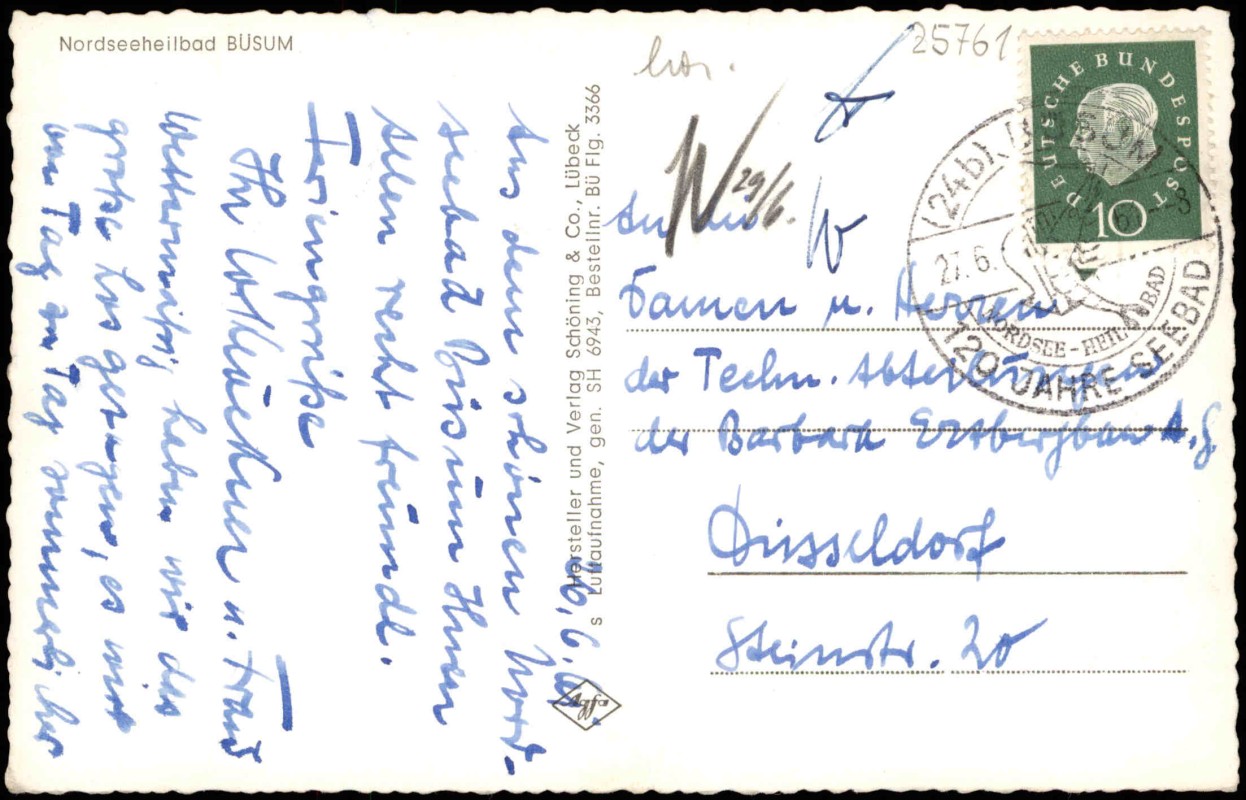 Nordseeheilbad BÜSUM
26.6.61.
Aus dem schönen Nord-
seebad Büsum Ihnen
allen recht freundl.
Feriengrüße
Ihr u. Frau
Wettermäßig haben wir das
große Los gezogen, es wird
von Tag zu Tag sommerlicher
Hersteller und Verlag Schöning & Co., Lübeck
s Luftaufnahme, gen. SH 6943, Bestellnr. Bü Flg. 3366
agfa
25761
hor.
W 29/6.
An die
Damen u. Herren
der Techn. Abteilungen
der Barbara Erzbergbau A.G
Düsseldorf
Steinstr. 20
DEUTSCHE BUNDESPOST
10
(24b) BÜSUM
27.6.61-8
NORDSEE-HEILBAD
120 JAHRE SEEBAD